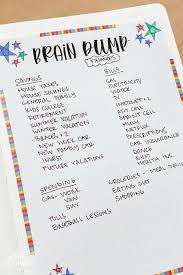 BRAIN DUMP
FINANCES
SAVINGS
HOUSE TAXES
HOUSE SAVINGS
GENERAL FAMILY
KIDS COLLEGE
RETIREMENT
SUMMER VACATION
WINTER VACATION
BRACES × 2
NEW WORK CAR
NEW FAMILY CAR
INVEST
FUTURE VACATIONS
BILLS
GAS
ELECTRICITY
WATER
TV
INTERNET
SPRINT CELL
HULU
NETFLIX
PRESCRIPTIONS
CAR INSURANCE
DANCE
GYM
HEALTH INS.
SPENDING
GAS - WORK
VAN
TOLLS
BASEBALL LESSONS
GROCERIES - MEAL
EATING OUT
SHOPPING